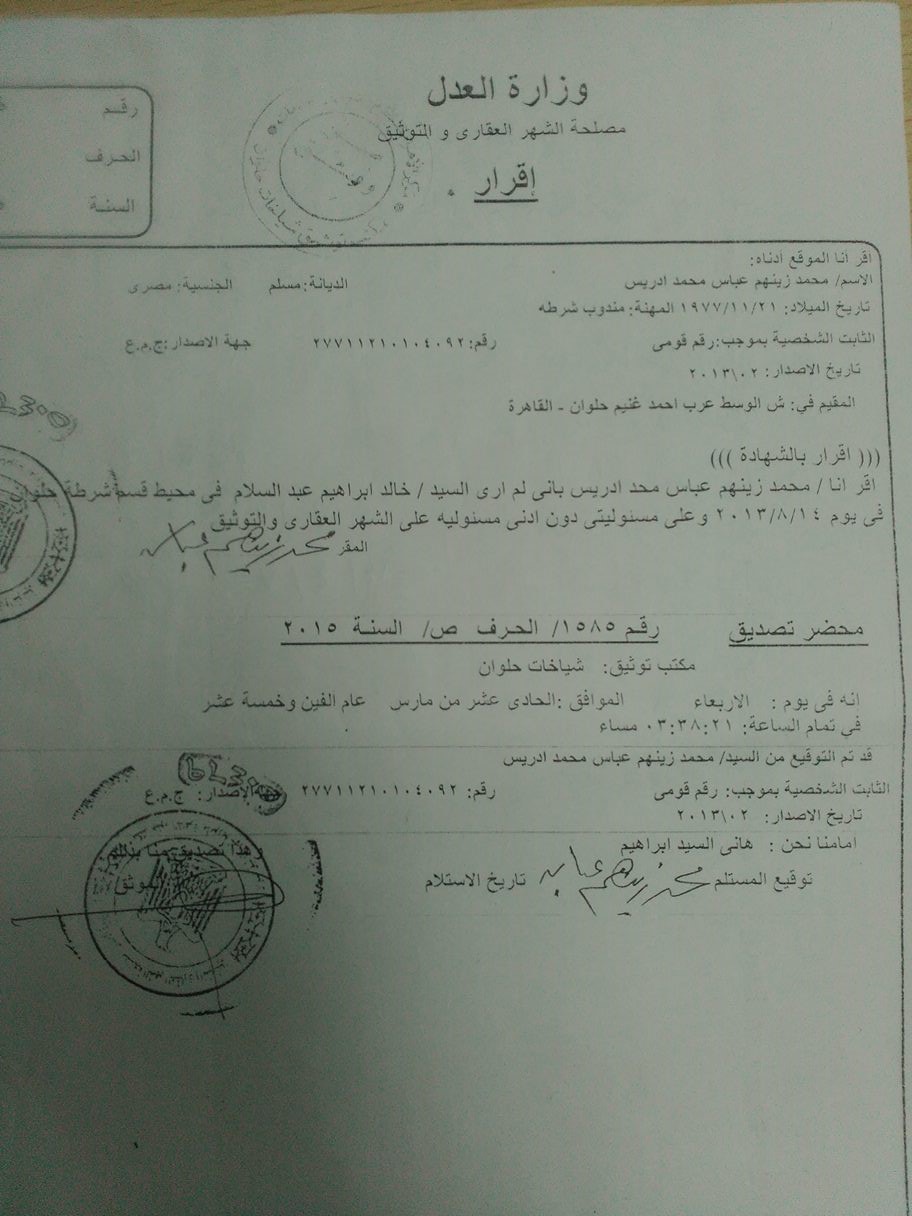 وزارة العدل
مصلحة الشهر العقارى و التوثيق
إقرار
رقم
الحرف
السنة
اقر انا الموقع أدناه:
الاسم/ محمد زينهم عباس محمد ادريس الديانة: مسلم الجنسية: مصرى
تاريخ الميلاد: ١٩٧٧/١١/٢١ المهنة: مندوب شرطه
الثابت الشخصية بموجب: رقم قومى رقم: ٢٧٧١١٢١٠١٠٤٠٩٢ جهة الاصدار: ج.م.ع
تاريخ الاصدار: ٢٠١٣\٠٢
المقيم في: ش الوسط عرب احمد غنيم حلوان - القاهرة
((( اقرار بالشهادة )))
اقر انا / محمد زينهم عباس محد ادريس بانى لم ارى السيد / خالد ابراهيم عبد السلام فى محيط قسم شرطة حلوان
فى يوم ٢٠١٣/٨/١٤ وعلى مسئوليتى دون ادنى مسئوليه على الشهر العقارى والتوثيق
المقر محمد زينهم عباس
محضر تصديق رقم ١٥٨٥/ الحرف ص/ السنة ٢٠١٥
مكتب توثيق: شياخات حلوان
انه فى يوم : الاربعاء الموافق :الحادى عشر من مارس عام الفين وخمسة عشر
في تمام الساعة: ٠٣:٣٨:٢١ مساء
قد تم التوقيع من السيد/ محمد زينهم عباس محمد ادريس
الثابت الشخصية بموجب: رقم قومى رقم: ٢٧٧١١٢١٠١٠٤٠٩٢ جهة الاصدار: ج.م.ع
تاريخ الاصدار: ٢٠١٣\٠٢
امامنا نحن : هانى السيد ابراهيم هذا تصديق منا بذلك
توقيع المستلم محمد زينهم عباس تاريخ الاستلام الموثق/